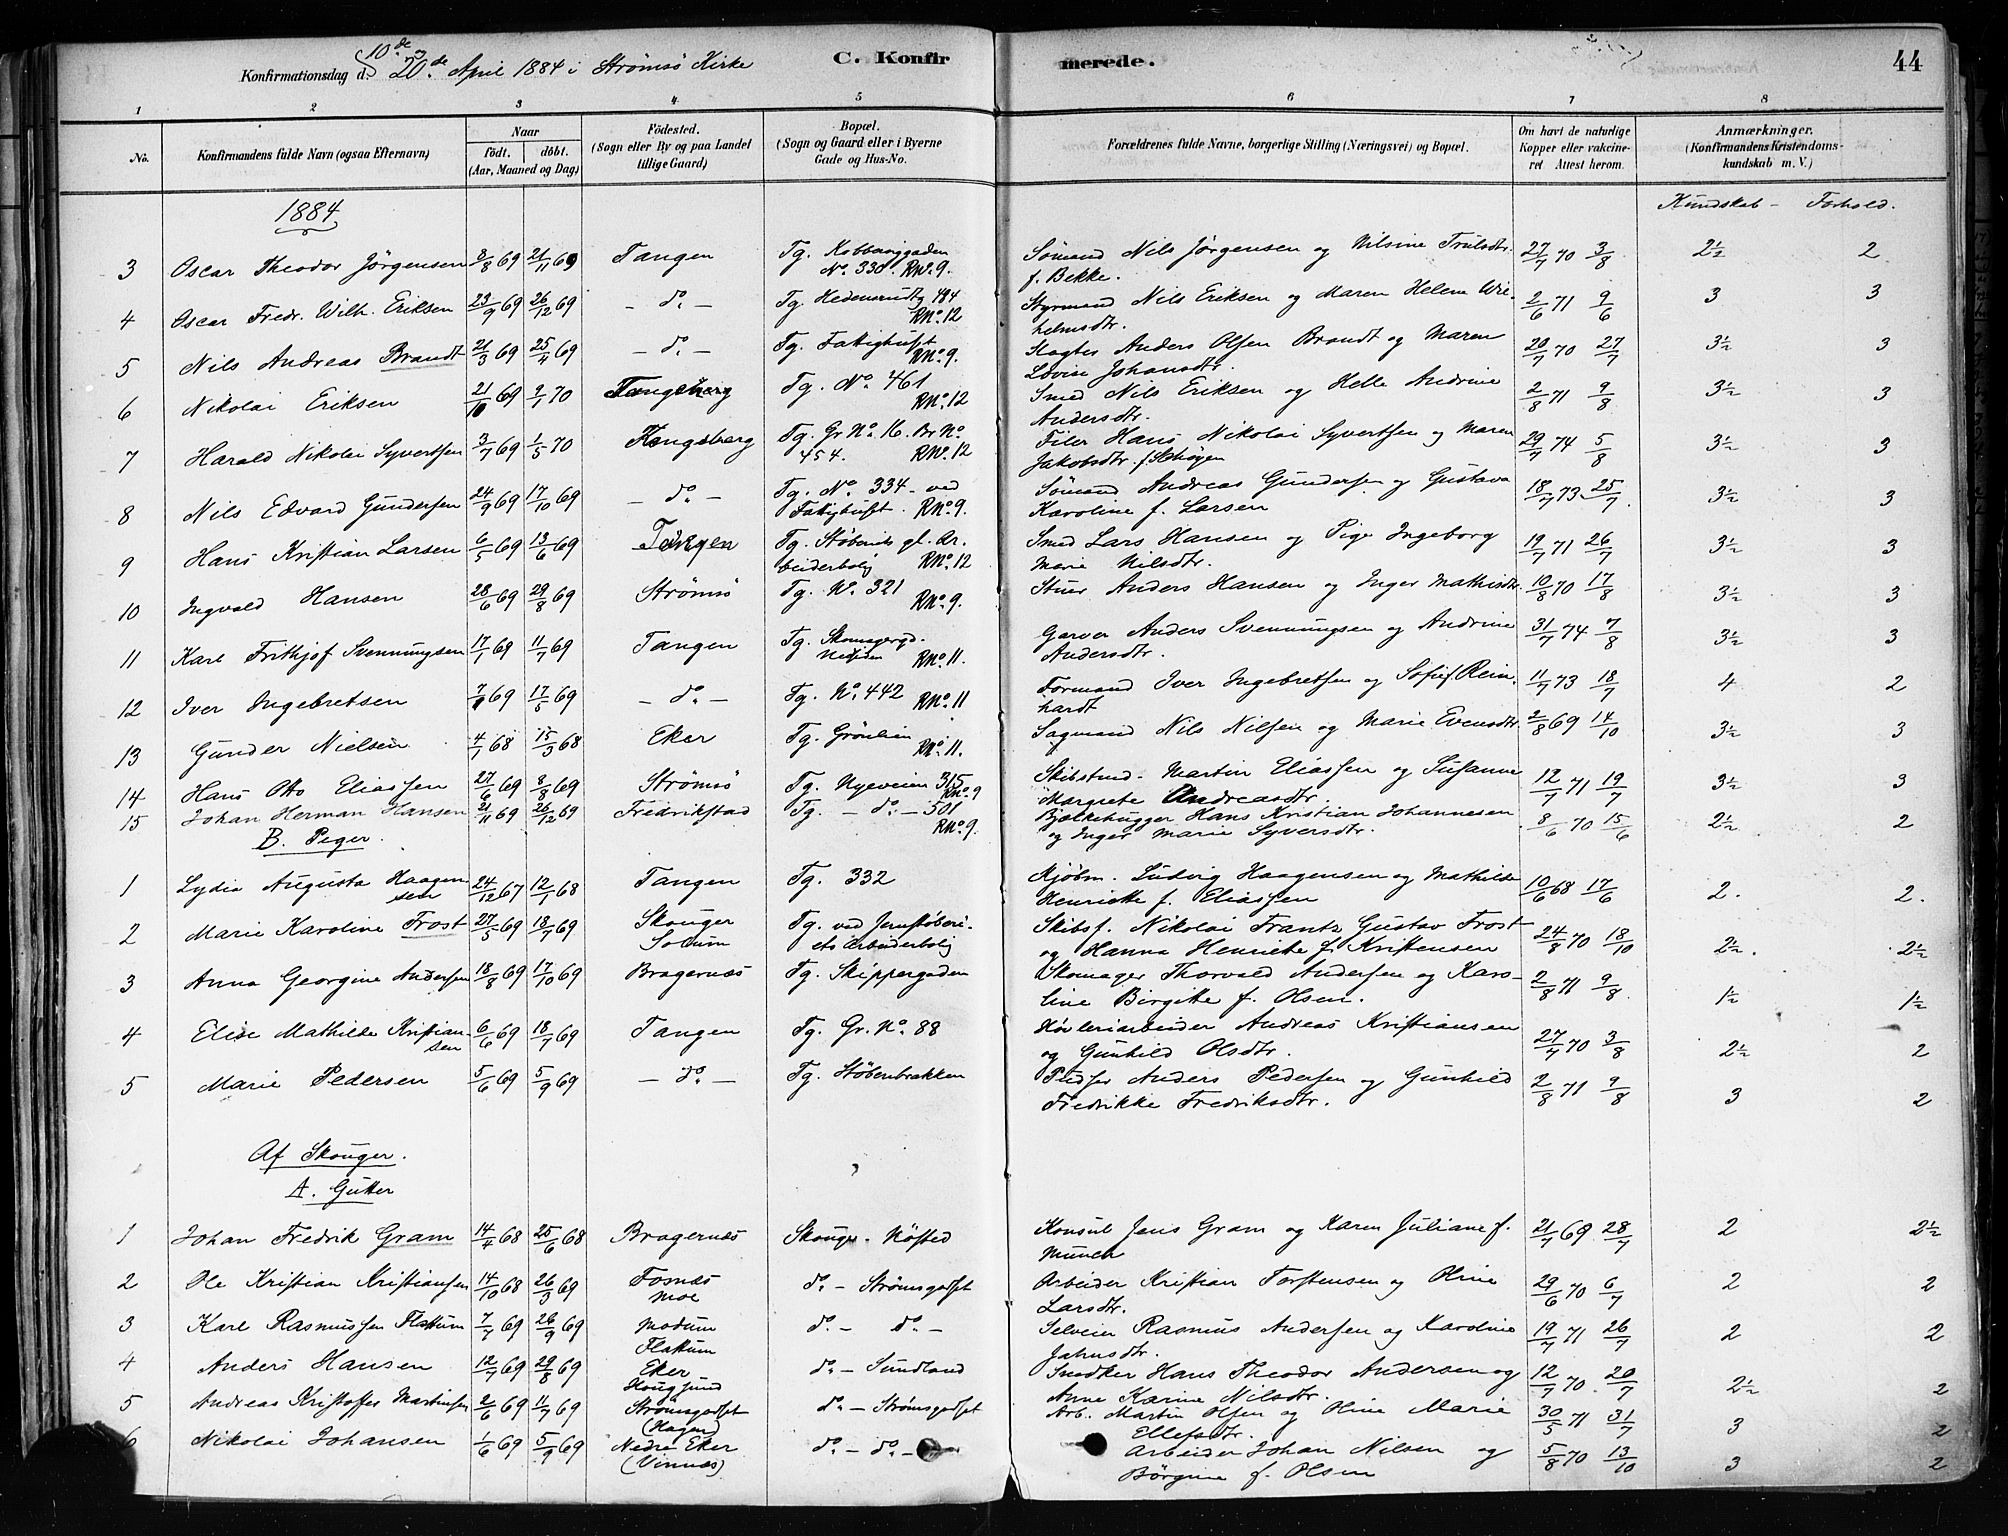 10de
Konfirmationsdag d. 20de April 1884 i Strømsø Kirke
C. Konfirmerede.
44
1 2 3 4 5 6 7 8
No.
Konfirmandens fulde Navn (ogsaa Efternavn)
Naar
födt. döbt.
(Aar, Maaned og Dag)
Födested.
(Sogn eller By og paa Landet
tillige Gaard)
Bopæl.
(Sogn og Gaard eller i Byerne
Gade og Hus-No.
Forældrenes fulde Navne, borgerlige Stilling (Næringsvei) og Bopæl.
Om havt de naturlige
Kopper eller vakcine-
ret Attest herom.
Anmærkninger.
(Konfirmandens Kristendoms-
kundskab m. V.)
1884
Kundskab - Forhold.
3 Oscar Theodor Jörgensen 3/8 69 21/11 69 Tangen Tg. Kobberviggaden No. 330 RNo. 9. Sømand Nils Jörgensen og Nilsine Trulsdtr. f. Bekke. 27/7 70 3/8 2½ 2
4 Oscar Fredr. Wilh. Eriksen 23/9 69 26/12 69 - do. - Tg. Hedensrudg 484 RNo. 12 Styrmand Nils Eriksen og Maren Helene Wilhelmsdtr. 2/6 71 9/6 3 3
5 Nils Andreas Brandt 21/3 69 25/4 69 - do. - Tg. Fattighuset RNo. 9. Slagter Anders Olsen Brandt og Maren Lovise Johansdtr. 20/7 70 27/7 3½ 3
6 Nikolai Eriksen 21/10 69 2/1 70 Tg. No. 461 RNo. 12 Smed Nils Eriksen og Helle Andrine Andersdtr. 2/8 71 9/8 3½ 3
7 Harald Nikolai Syvertsen 3/7 69 1/5 70 Kongsberg Tg. Gr No. 16. Br No. 454. RNo. 12 Filer Hans Nikolai Syvertsen og Maren Jakobsdtr. f. 29/7 74 5/8 3½ 3
8 Nils Edvard Gundersen 24/9 69 17/10 69 - do. - Tg. No. 334 - ved Fattighuset. RNo. 9. Sømand Andreas Gundersen og Gustava Karoline f. Larsen 18/7 73 25/7. 3½ 3
9 Hans Kristian Larsen 6/5 69 13/6 69 Tangen Tg. Støberiets gl. Arbeiderbolig RNo. 12 Smed Lars Hansen og Pige Ingeborg Marie Nilsdtr. 19/7 71 26/7 3½ 3
10 Ingvald Hansen 28/6 69 29/8 69 Strømsø Tg. No. 321 RNo. 9. Stuer Anders Hansen og Inger Mathisdtr. 10/8 70 17/8 3½ 3
11 Karl Frithjof Svenningsen 17/1 69 11/7 69 Tangen Tg. Skomagergd. Nedsiden RNo. 11. Garver Anders Svenningsen og Andrine Andersdtr. 31/7 74 7/8 3½ 3
12 Iver Ingebretsen 69 17/5 69 - do. - Tg. No. 442 RNo. 11 Formand Iver Ingebretsen og Sofie f. Reinhardt 11/7 73 18/7 4 2
13 Gunder Nielsen 4/1 68 15/3 68 Eker Tg. Grönlien RNo. 11. Sagmand Nils Nilsen og Marie Evensdtr. 2/8 69 14/10 3½ 3
14 Hans Otto Eliassen 27/6 69 8/8 69 Strømsø Tg. Nyeveien 315 RNo. 9 Skibstmd. Martin Eliassen og Susanne Margrete Andreasdtr. 12/7 71 19/7 3½ 3
15 Johan Herman Hansen 21/11 69 26/12 69 Fredrikstad Tg. - do. - 501 RNo. 9. Bjælkehugger Hans Kristian Johannesen og Inger Marie Syversdtr. 8/6 70 15/6 2½ 2
B. Piger.
1 Lydia Augusta Haagensen 24/12 67 12/1 68 Tangen Tg. 332 Kjøbm. Ludvig Haagensen og Mathilde Henriette f. Eliassen 10/6 68 17/6 2. 2.
2 Marie Karoline Frost 27/5 69 18/7 69 Skouger Solum Tg. ved Jernstøberiets Arbeiderbolig Skibsf. Nikolai Frantz Gustav Frost og Hanna Henriette f. Kristensen 24/8 70 18/10 2½. 2½
3 Anna Georgine Andersen 18/8 69 17/10 69 Bragernæs Tg. Skippergaden Skomager Thorvald Andersen og Karoline Birgitte f. Olsen. 2/8 71 9/8. 1½ 1½
4 Elise Mathilde Kristiansen 6/6 69 18/7 69 Tangen Tg. Gr. No. 88 Høvleriarbeider Andreas Kristiansen og Gunhild Olsdtr. 27/7 70 3/8 2½ 2
5 Marie Pedersen 5/6 69 5/9 69 - do. - Tg. Støberibrakken Pudser Anders Pedersen og Gunhild Fredrikke Fredriksdtr. 2/8 71 9/8 3 2
Af Skouger.
A. Gutter
1 Johan Fredrik Gram 14/4 68 25/6 68 Bragernæs Skouger - Nøsted Konsul Jens Gram og Karen Juliane f. Munch 21/7 69. 28/7 2 2½
2 Ole Kristian Kristiansen 14/10 68 26/3 69 Fosnæs Moe do. - Strømsgodset Arbeider Kristian Torstensen og Oline Larsdtr. 29/6 70 6/7 2 2
3 Karl Rasmussen Flattum 7/7 69 26/9 69 Modum Flattum do. - do. - Selveier Rasmus Andersen og Karoline Jahnsdtr. 19/7 71 26/7 2 2
4 Anders Hansen 12/7 69 29/8 69 Eker Hougsund do. - Sundland Snedker Hans Theodor Andersen og Anne Karine Nilsdtr. 12/7 70. 20/7 2½ 2
5 Andreas Kristoffer Martinsen 2/6 69 11/7 69 Strømsgodset (Hagen) do. - Strømsgodset Arb. Martin Olsen og Oline Marie Ellefsdtr. 30/5 71 31/7 3 2
6 Nikolai Johansen 1/6 69 5/9 69 Nedre Eker (Vinnæs) do. - do. - Arbeider Johan Nilsen og Börgine f. Olsen 5/8 70 13/10 3 2